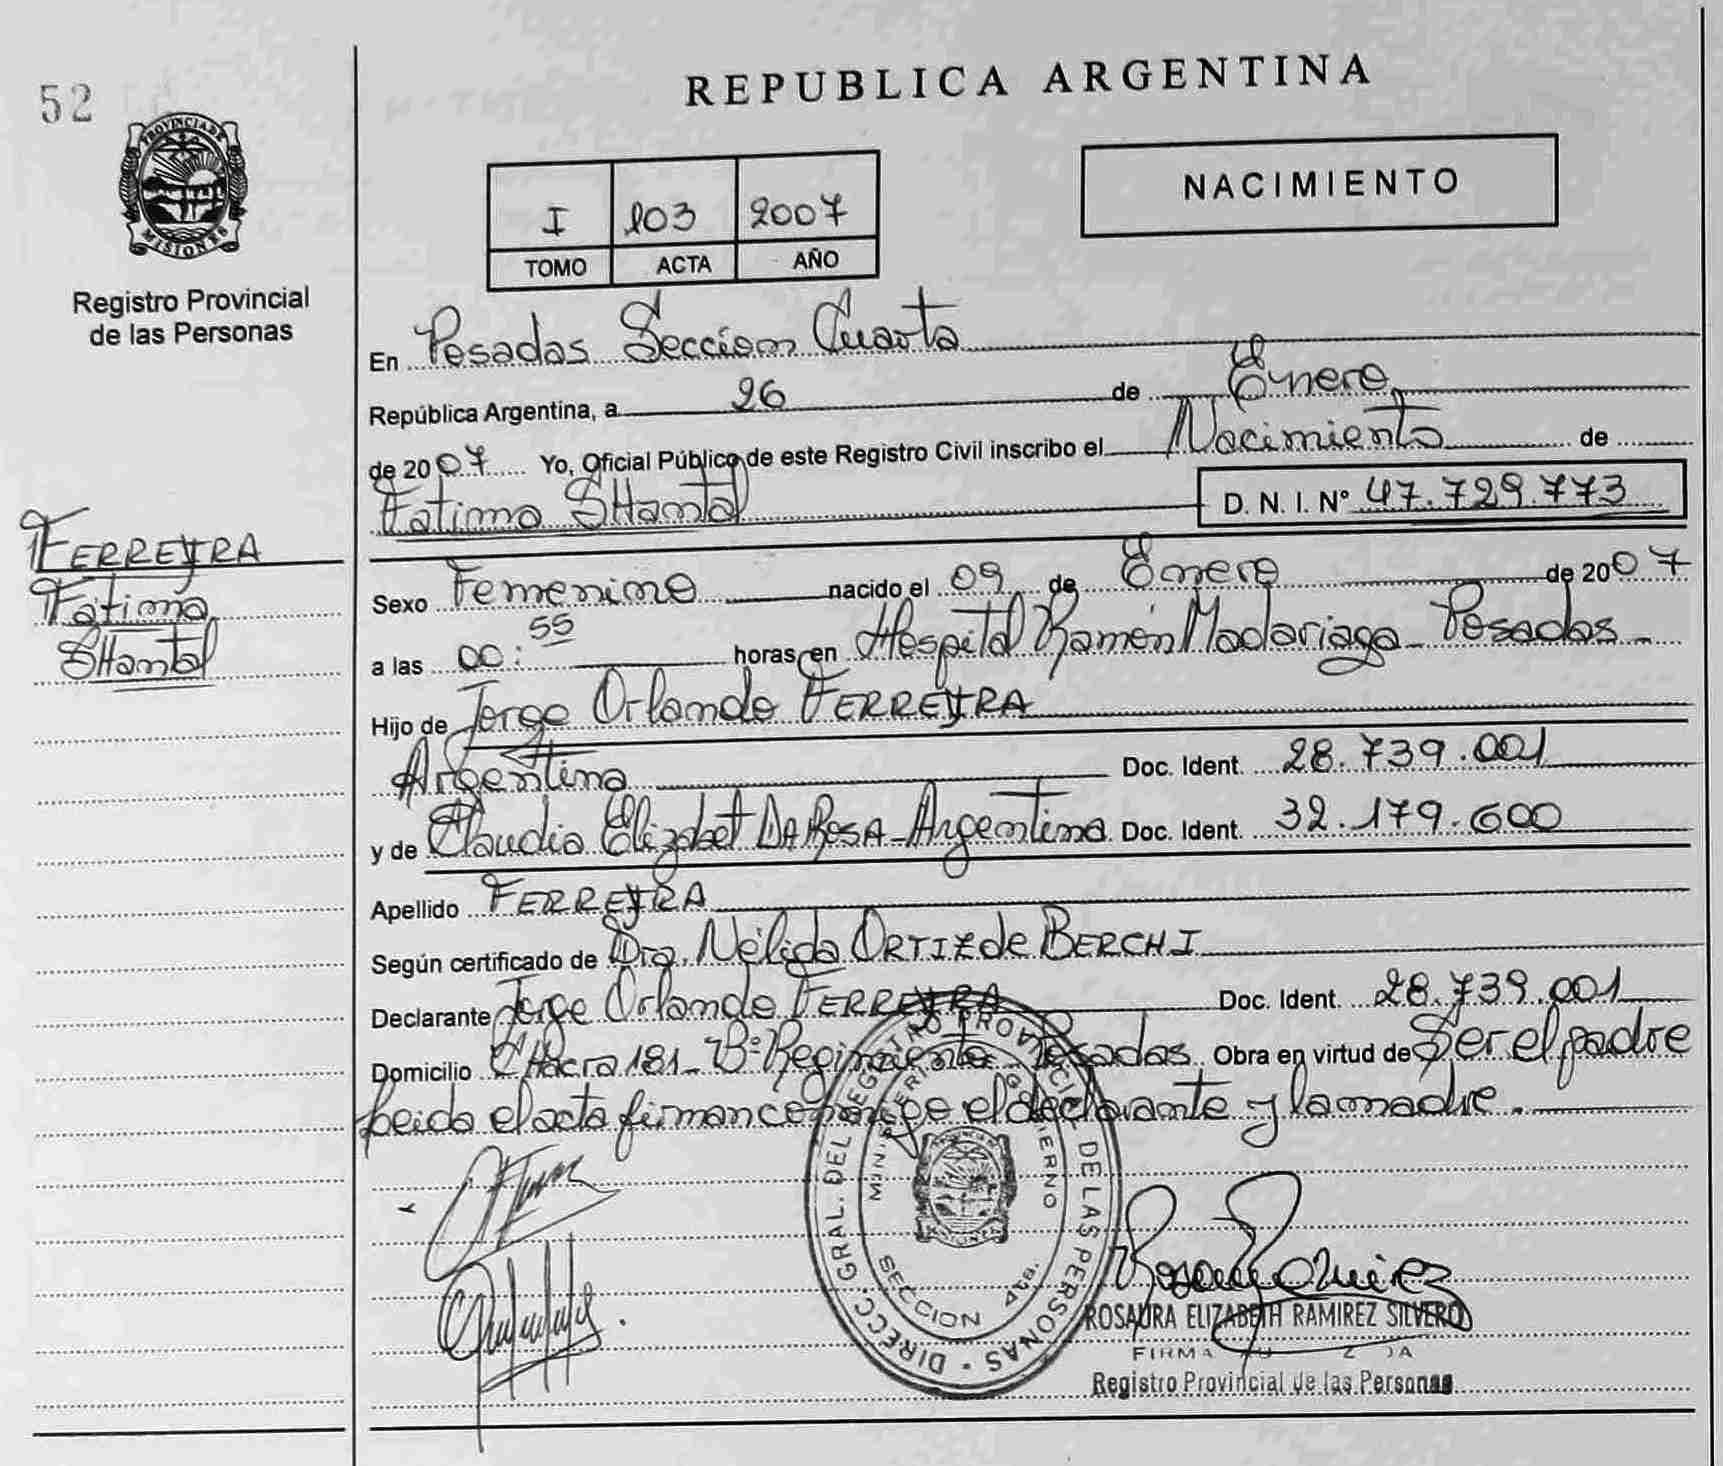 52
REPUBLICA ARGENTINA
PROVINCIA DE
MISIONES
Registro Provincial
de las Personas
I 103 2007
TOMO ACTA AÑO
NACIMIENTO
En Posadas Seccion Cuarta
República Argentina, a 26 de Enero
de 2007 Yo, Oficial Público de este Registro Civil inscribo el Nacimiento de
Fatima SHantal D. N. I. Nº 47.729.773
FERREYRA
Fátima
SHantal
Sexo Femenino nacido el 09 de Enero de 2007
a las 00:55 horas en Hospital Ramón Madariaga - Posadas -
Hijo de Jorge Orlando FERREYRA
Argentina Doc. Ident. 28.739.001
y de Claudia Elizabet DA ROSA - Argentina Doc. Ident. 32.179.600
Apellido FERREYRA
Según certificado de Dra. Nélida ORTIZ de BERCHI
Declarante Jorge Orlando FERREYRA Doc. Ident. 28.739.001
Domicilio CHacra 181 - Bº Regimiento Posadas Obra en virtud de Ser el padre
leida el acta firman conmigo el declarante y la madre.
DIRECC. GRAL. DEL REGISTRO PROVINCIAL DE LAS PERSONAS
MINISTERIO DE GOBIERNO
SECCION 4ta.
ROSAURA ELIZABETH RAMIREZ SILVERO
FIRMA
Registro Provincial de las Personas